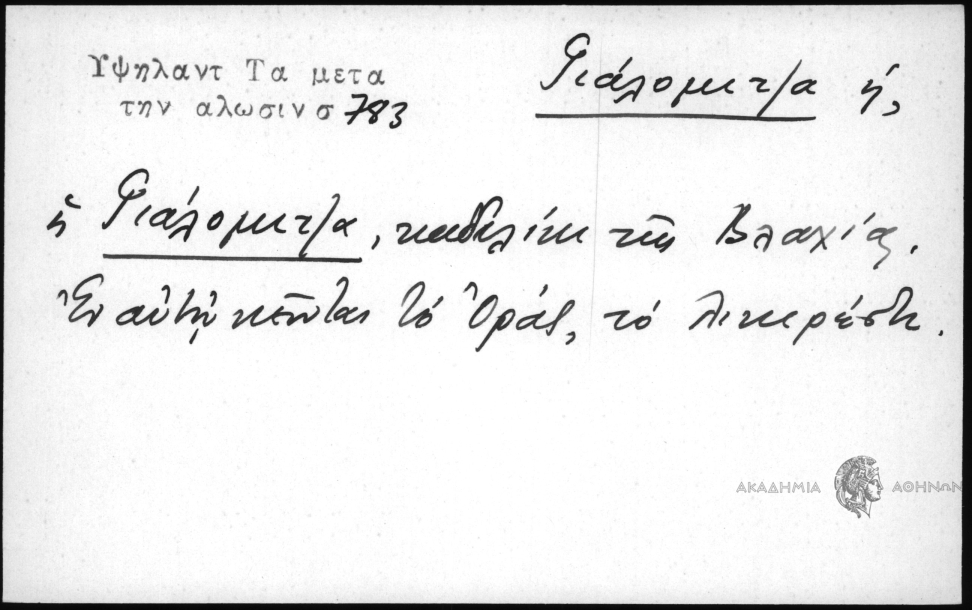 Υψηλαντ Τα μετα
την αλωσιν σ 783
Γιάλομιτζα ἡ,
ἡ Γιάλομιτζα, καδιλίκι τῆς Βλαχίας.
Ἐν αὐτῇ κεῖνται τὸ Ὀράς, τό
ΑΚΑΔΗΜΙΑ ΑΘΗΝΩΝ